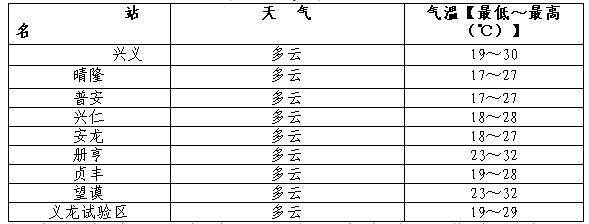 站名 天 气 气温【最低～最高（℃）】
兴义 多云 19～30
晴隆 多云 17～27
普安 多云 17～27
兴仁 多云 18～28
安龙 多云 18～27
册亨 多云 23～32
贞丰 多云 19～28
望谟 多云 23～32
义龙试验区 多云 19～29